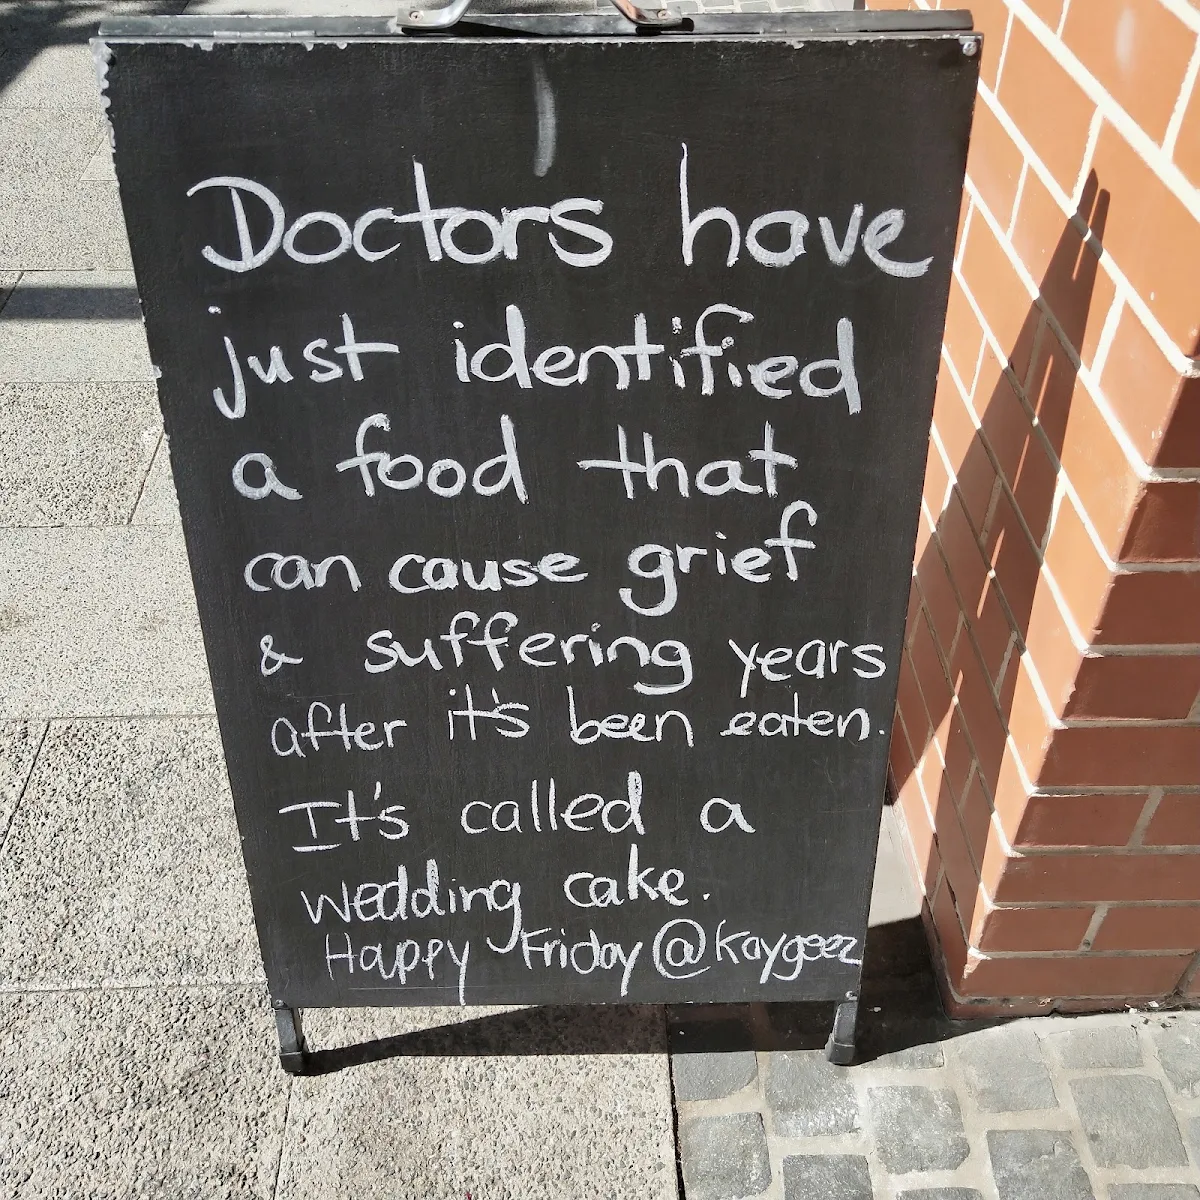 Doctors have
just identified
a food that
can cause grief
& suffering years
after it's been eaten.
It's called a
wedding cake.
Happy Friday @kaygeez